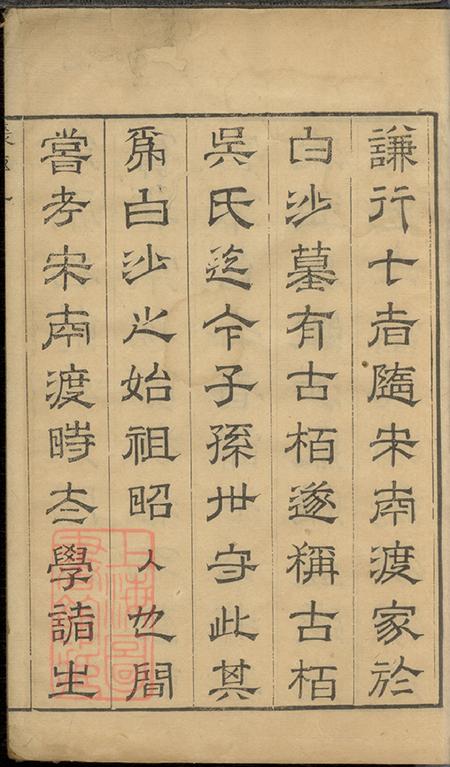 謙行七者隨宋南渡家於
白沙墓有古栢遂稱古栢
吳氏迄今子孫世守此其
為白沙之始祖昭〻也間
嘗考宋南渡時太學諸生
上海圖
書館藏